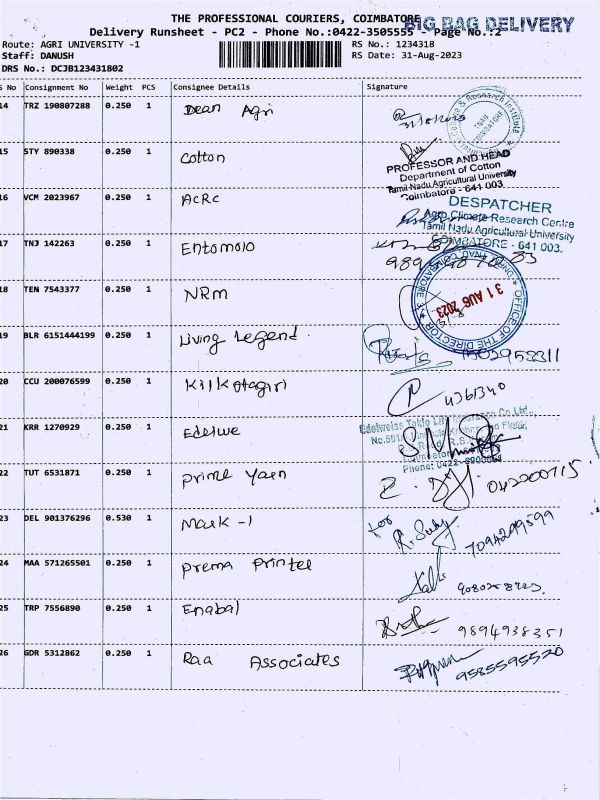 THE PROFESSIONAL COURIERS, COIMBATORE
BIG BAG DELIVERY
Delivery Runsheet - PC2 - Phone No.:0422-3505555 - Page No.:2
Route: AGRI UNIVERSITY -1
RS No.: 1234318
Staff: DANUSH
RS Date: 31-Aug-2023
DRS No.: DCJB123431802
S No Consignment No Weight PCS Consignee Details Signature
14 TRZ 190807288 0.250 1 Dean Agri
15 STY 890338 0.250 1 Cotton
PROFESSOR AND HEAD
Department of Cotton
Tamil Nadu Agricultural University
Coimbatore - 641 003.
16 VCM 2023967 0.250 1 ACRC
DESPATCHER
Agro Climate Research Centre
Tamil Nadu Agricultural University
COIMBATORE - 641 003.
17 TNJ 142263 0.250 1 Entomolo
18 TEN 7543377 0.250 1 NRM
OFFICE OF THE DIRECTOR
31 AUG 2023
19 BLR 6151444199 0.250 1 Living Legend.
20 CCU 200076599 0.250 1 Kilkotagiri
4361340
21 KRR 1270929 0.250 1 Edelwe
Edelweiss Tokio Life Insurance Co Ltd.,
22 TUT 6531871 0.250 1 prime Yarn
042200715
23 DEL 901376296 0.530 1 Mark -1
for
7094299599
24 MAA 571265501 0.250 1 prema Printee
25 TRP 7556890 0.250 1 Enabal
9894938351
26 GDR 5312862 0.250 1 Raa Associates
9585595520